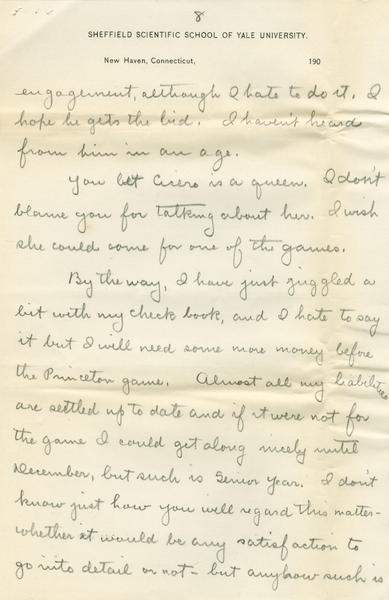 8
SHEFFIELD SCIENTIFIC SCHOOL OF YALE UNIVERSITY.
New Haven, Connecticut, 190
engagement, although I hate to do it. I
hope he gets the bid. I haven't heard
from him in an age.
You bet Cicero is a queen. I don't
blame you for talking about her. I wish
she could come for one of the games.
By the way, I have just juggled a
bit with my check book, and I hate to say
it but I will need some more money before
the Princeton game. Almost all my liabilities
are settled up to date and if it were not for
the game I could get along nicely until
December, but such is Senior Year. I don't
know just how you will regard this matter -
whether it would be any satisfaction to
go into detail or not - but anyhow such is